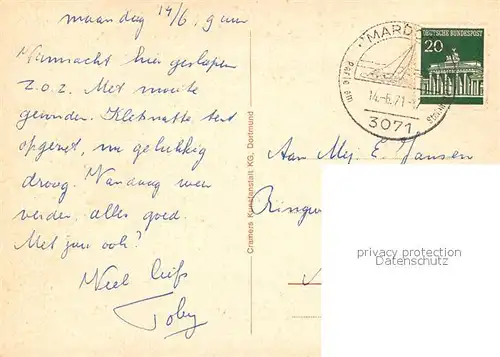 maandag 14/6. 9 uur
Vannacht hier geslapen
Z.O.Z. Met moeite
gevonden. Kletsnatte tent
opgezet, nu gelukkig
droog. Vandaag weer
verder, alles goed.
Met jou ook?
Veel liefs
Toby
Cramers Kunstanstalt KG, Dortmund
MARDO
Perle am
14.-6.71
3071
DEUTSCHE BUNDESPOST
20
Aan Mej. E. Jansen
privacy protection
Datenschutz